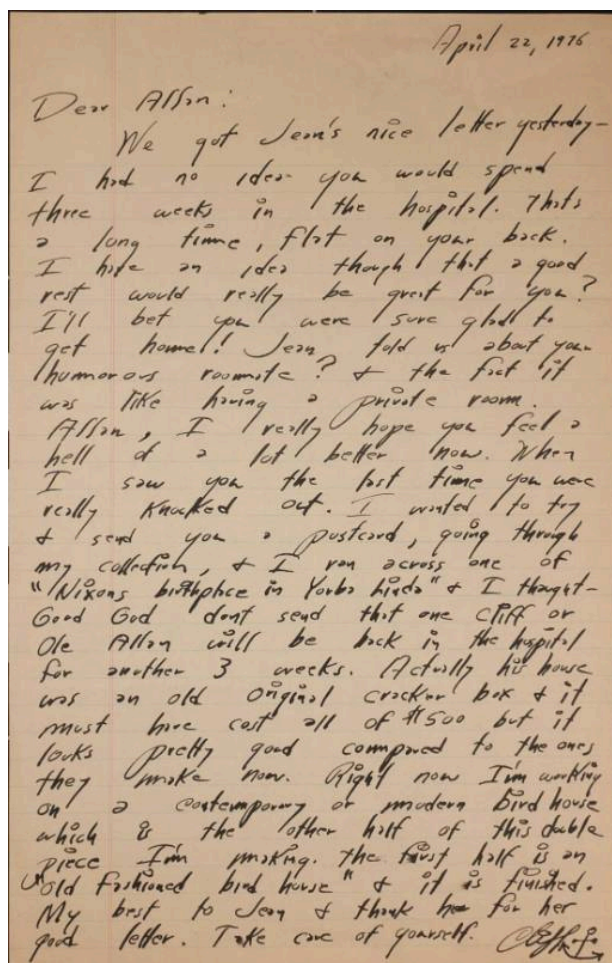 April 22, 1976
Dear Allan:
We got Jean's nice letter yesterday-
I had no idea you would spend
three weeks in the hospital. Thats
a long time, flat on your back.
I have an idea though that a good
rest would really be great for you?
I'll bet you were sure glad to
get home! Jean told us about your
humorous roommate? & the fact it
was like having a private room.
Allan, I really hope you feel a
hell of a lot better now. When
I saw you the last time you were
really knocked out. I wanted to try
& send you a postcard, going through
my collection, & I ran across one of
"Nixons birthplace in Yorba Linda" & I thought-
Good God dont send that one Cliff or
Ole Allan will be back in the hospital
for another 3 weeks. Actually his house
was an old original cracker box & it
must have cost all of $500 but it
looks pretty good compared to the ones
they make now. Right now I'm working
on a contemporary or modern bird house
which is the other half of this double
piece I'm making. the first half is an
"old fashioned bird house" & it is finished.
My best to Jean & thank her for her
good letter. Take care of yourself.